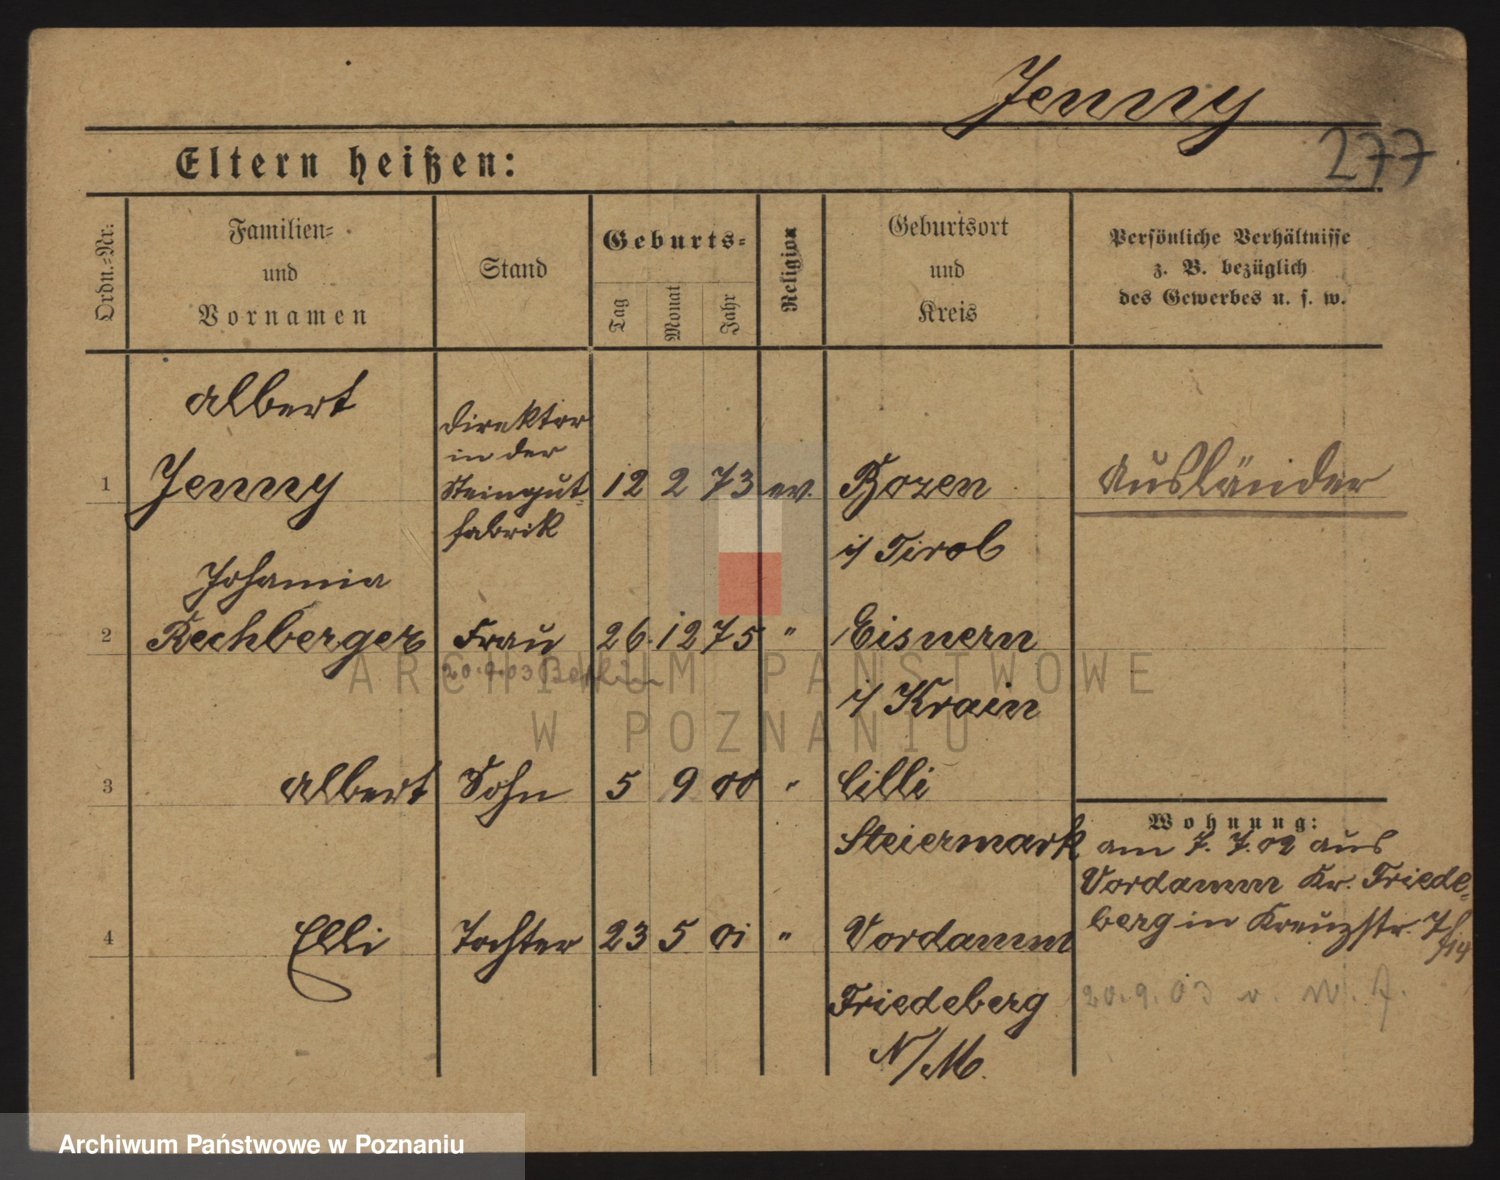 Jenny
277
Eltern heißen:
Ordn.-Nr.
Familien-
und
Vornamen
Stand
Geburts-
Tag
Monat
Jahr
Religion
Geburtsort
und
Kreis
Persönliche Verhältnisse
z. B. bezüglich
des Gewerbes u. s. w.
Albert
1 Jenny
Direktor
in der
Steingut-
fabrik
12 2 73 ev.
Bozen
i/ Tirol
Ausländer
Johanna
2 Rechberger Frau 26. 12 75 " Eisnern
20.9.03 Berlin
i/ Krain
3 Albert Sohn 5 9 00 " Cilli
Steiermark
Wohnung:
am 7. 7. 02 aus
Vordamm Kr. Friede-
berg in Kreuzstr. 7/
4 Elli Tochter 23 5 01 " Vordamm
Friedeberg
N/M.
20.9.03
ARCHIWUM PAŃSTWOWE
W POZNANIU
Archiwum Państwowe w Poznaniu